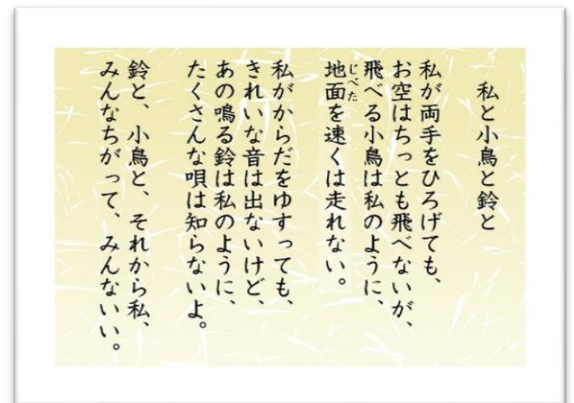 私と小鳥と鈴と
私が両手をひろげても、
お空はちっとも飛べないが、
飛べる小鳥は私のように、
地面を速くは走れない。
じべた
私がからだをゆすっても、
きれいな音は出ないけど、
あの鳴る鈴は私のように、
たくさんな唄は知らないよ。
鈴と、小鳥と、それから私、
みんなちがって、みんないい。